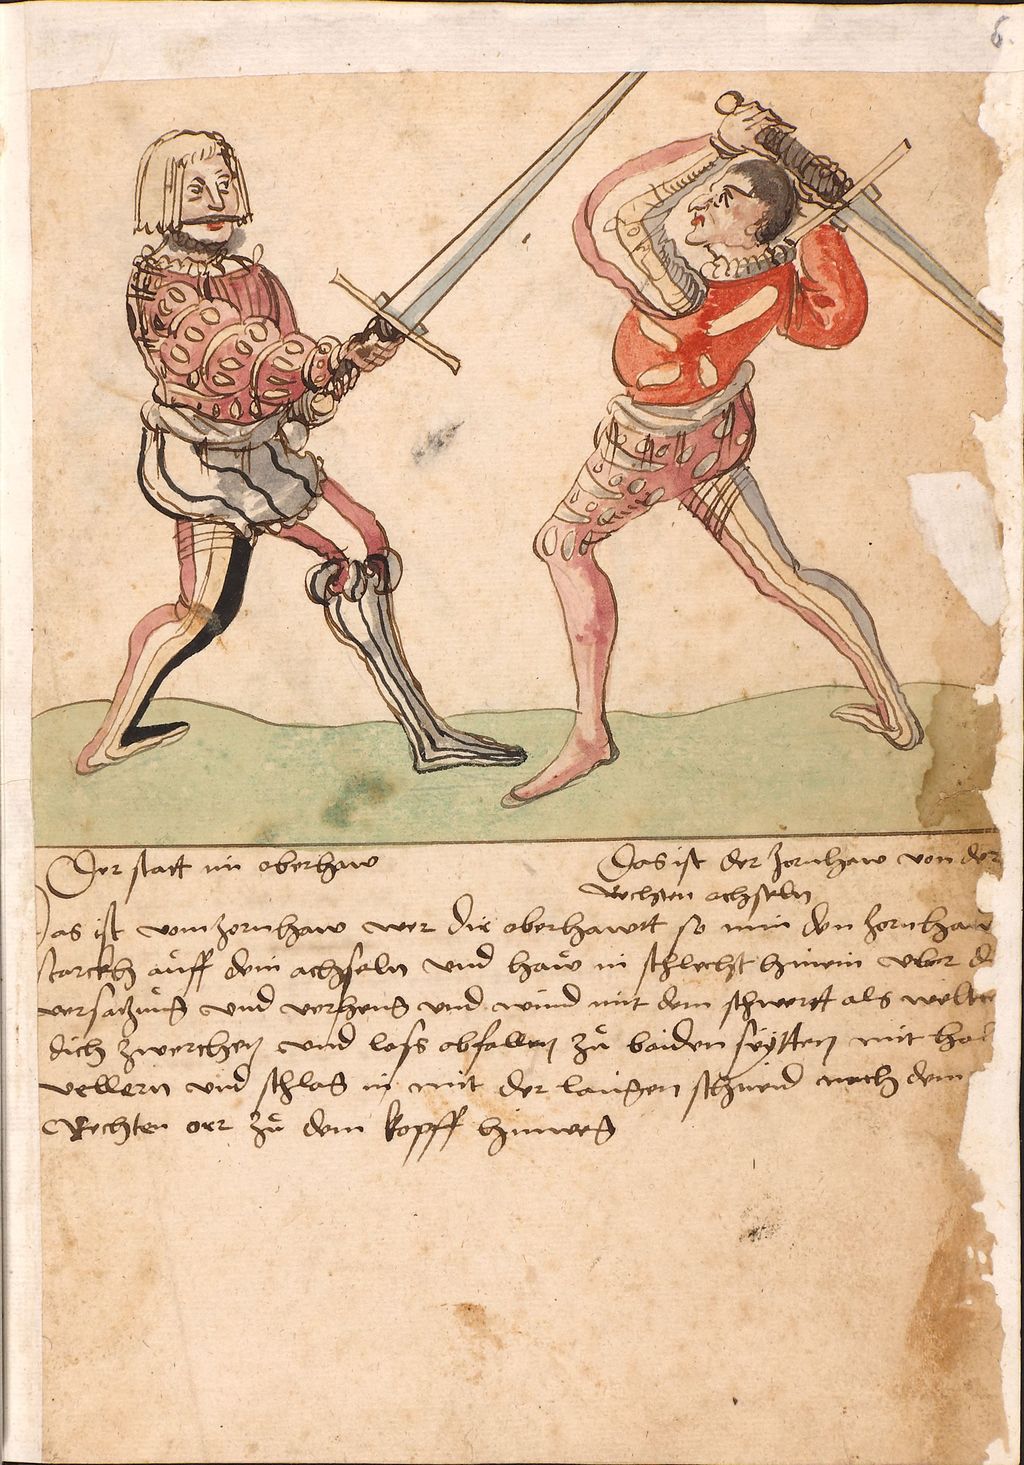 6.
Der statt im oberhaw
Das ist der zornhaw von der
Rechten achseln
Das ist vom zornhaw wer dir oberhawtt so nim den zornhaw
starckh auff dein achseln und haw in schlecht hinein uber d
versatzung und verheng und wind mit dem schwertt als weltest
dich zwerchen und lass abfallen zu baiden seytten mit hal
vellern und schlag in mit der langen schneid nach dem
Rechten orr zu dem kopff hinweg